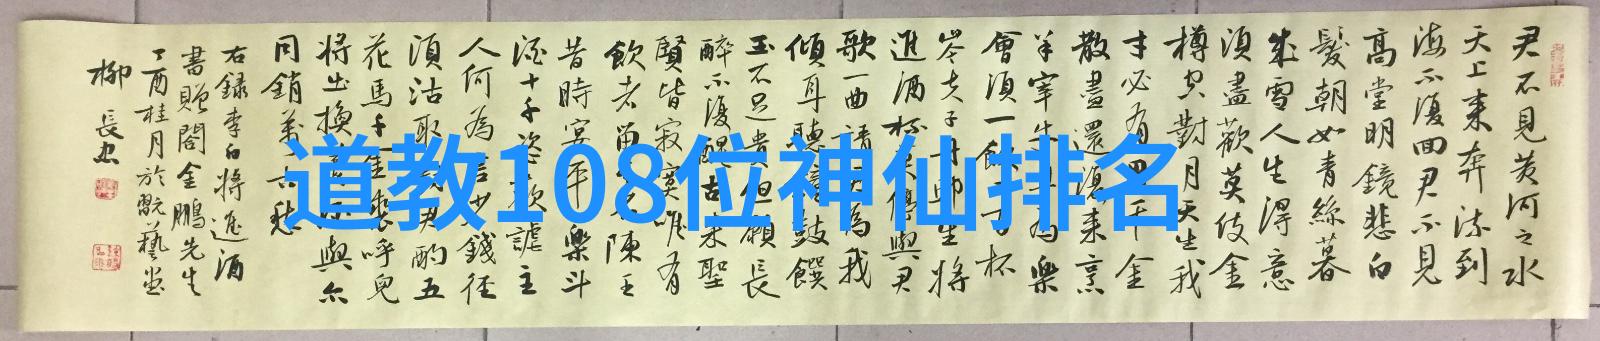 君不見黃河之水
天上來奔流到
海不復回君不見
高堂明鏡悲白
髮朝如青絲暮
成雪人生得意
須盡歡莫使金
樽空對月天生我
才必有用千金
散盡還復來烹
羊宰牛且為樂
會須一飲三百杯
岑夫子丹生將
進酒杯莫停與君
歌一曲請君為我
傾耳聽鼓饌
玉不足貴但願長
醉不復醒古來聖
賢皆寂寞唯有
飲者留名陳王
昔時宴平樂斗
酒十千恣歡謔主
人何為言少錢徑
須沽取對君酌五
花馬千金裘呼兒
將出換美酒與尓
同銷萬古愁
右錄李白將進酒
書贈閻金鵬先生
丁酉桂月於翫藝堂
柳長忠
道教108位神仙排名